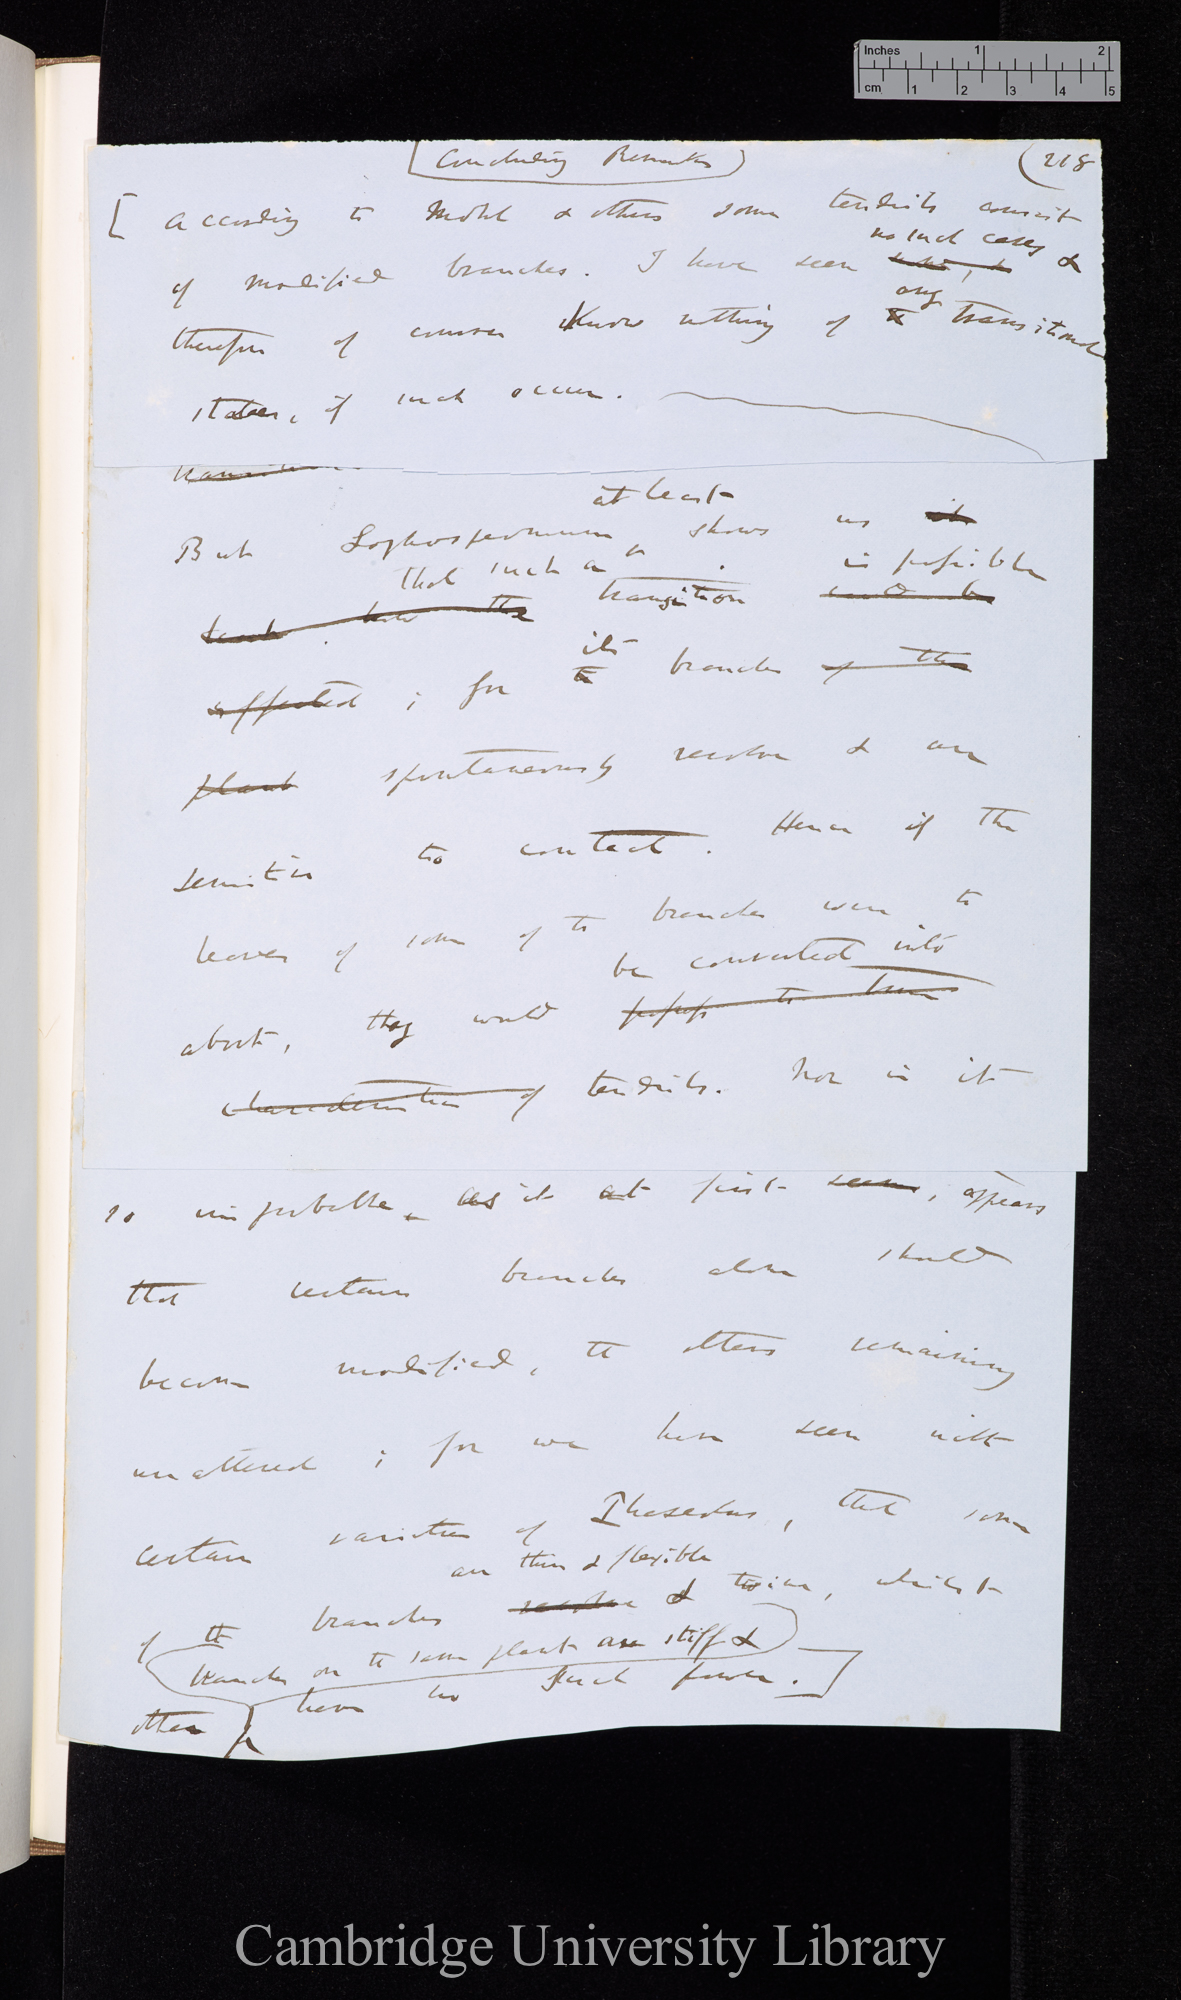 Inches 1 2
cm 1 2 3 4 5
Concluding Remarks (218
[According to Mohl & others some tendrils consist
no such cases &
of modified branches. I have seen
any
therefore of course know nothing of transitional
states, if such occur.
transition
at least
But Lophospermum, shows us it
that such a transition is possible
its
effected; for branches of the
plant spontaneously revolve & are
sensitive to contact. Hence if the
leaves of some of the branches were to
be converted into
abort, they would possess the
character of tendrils. Nor is it
so improbable, as it at first seems, appears
that certain branches alone should
become modified, the others remaining
unaltered; for we have seen with
certain varieties of Phaseolus, that some
are thin & flexible
of the branches revolve & twine, whilst
branches on the same plant are stiff &
other have no such power.]
Cambridge University Library